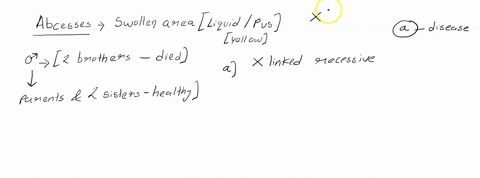 Abcesses → Swollen area [Liquid/Pus] X
[Yellow]
(a) - disease
♂ → [2 brothers - died]
a] X linked recessive
↓
Parents & 2 sisters - healthy]